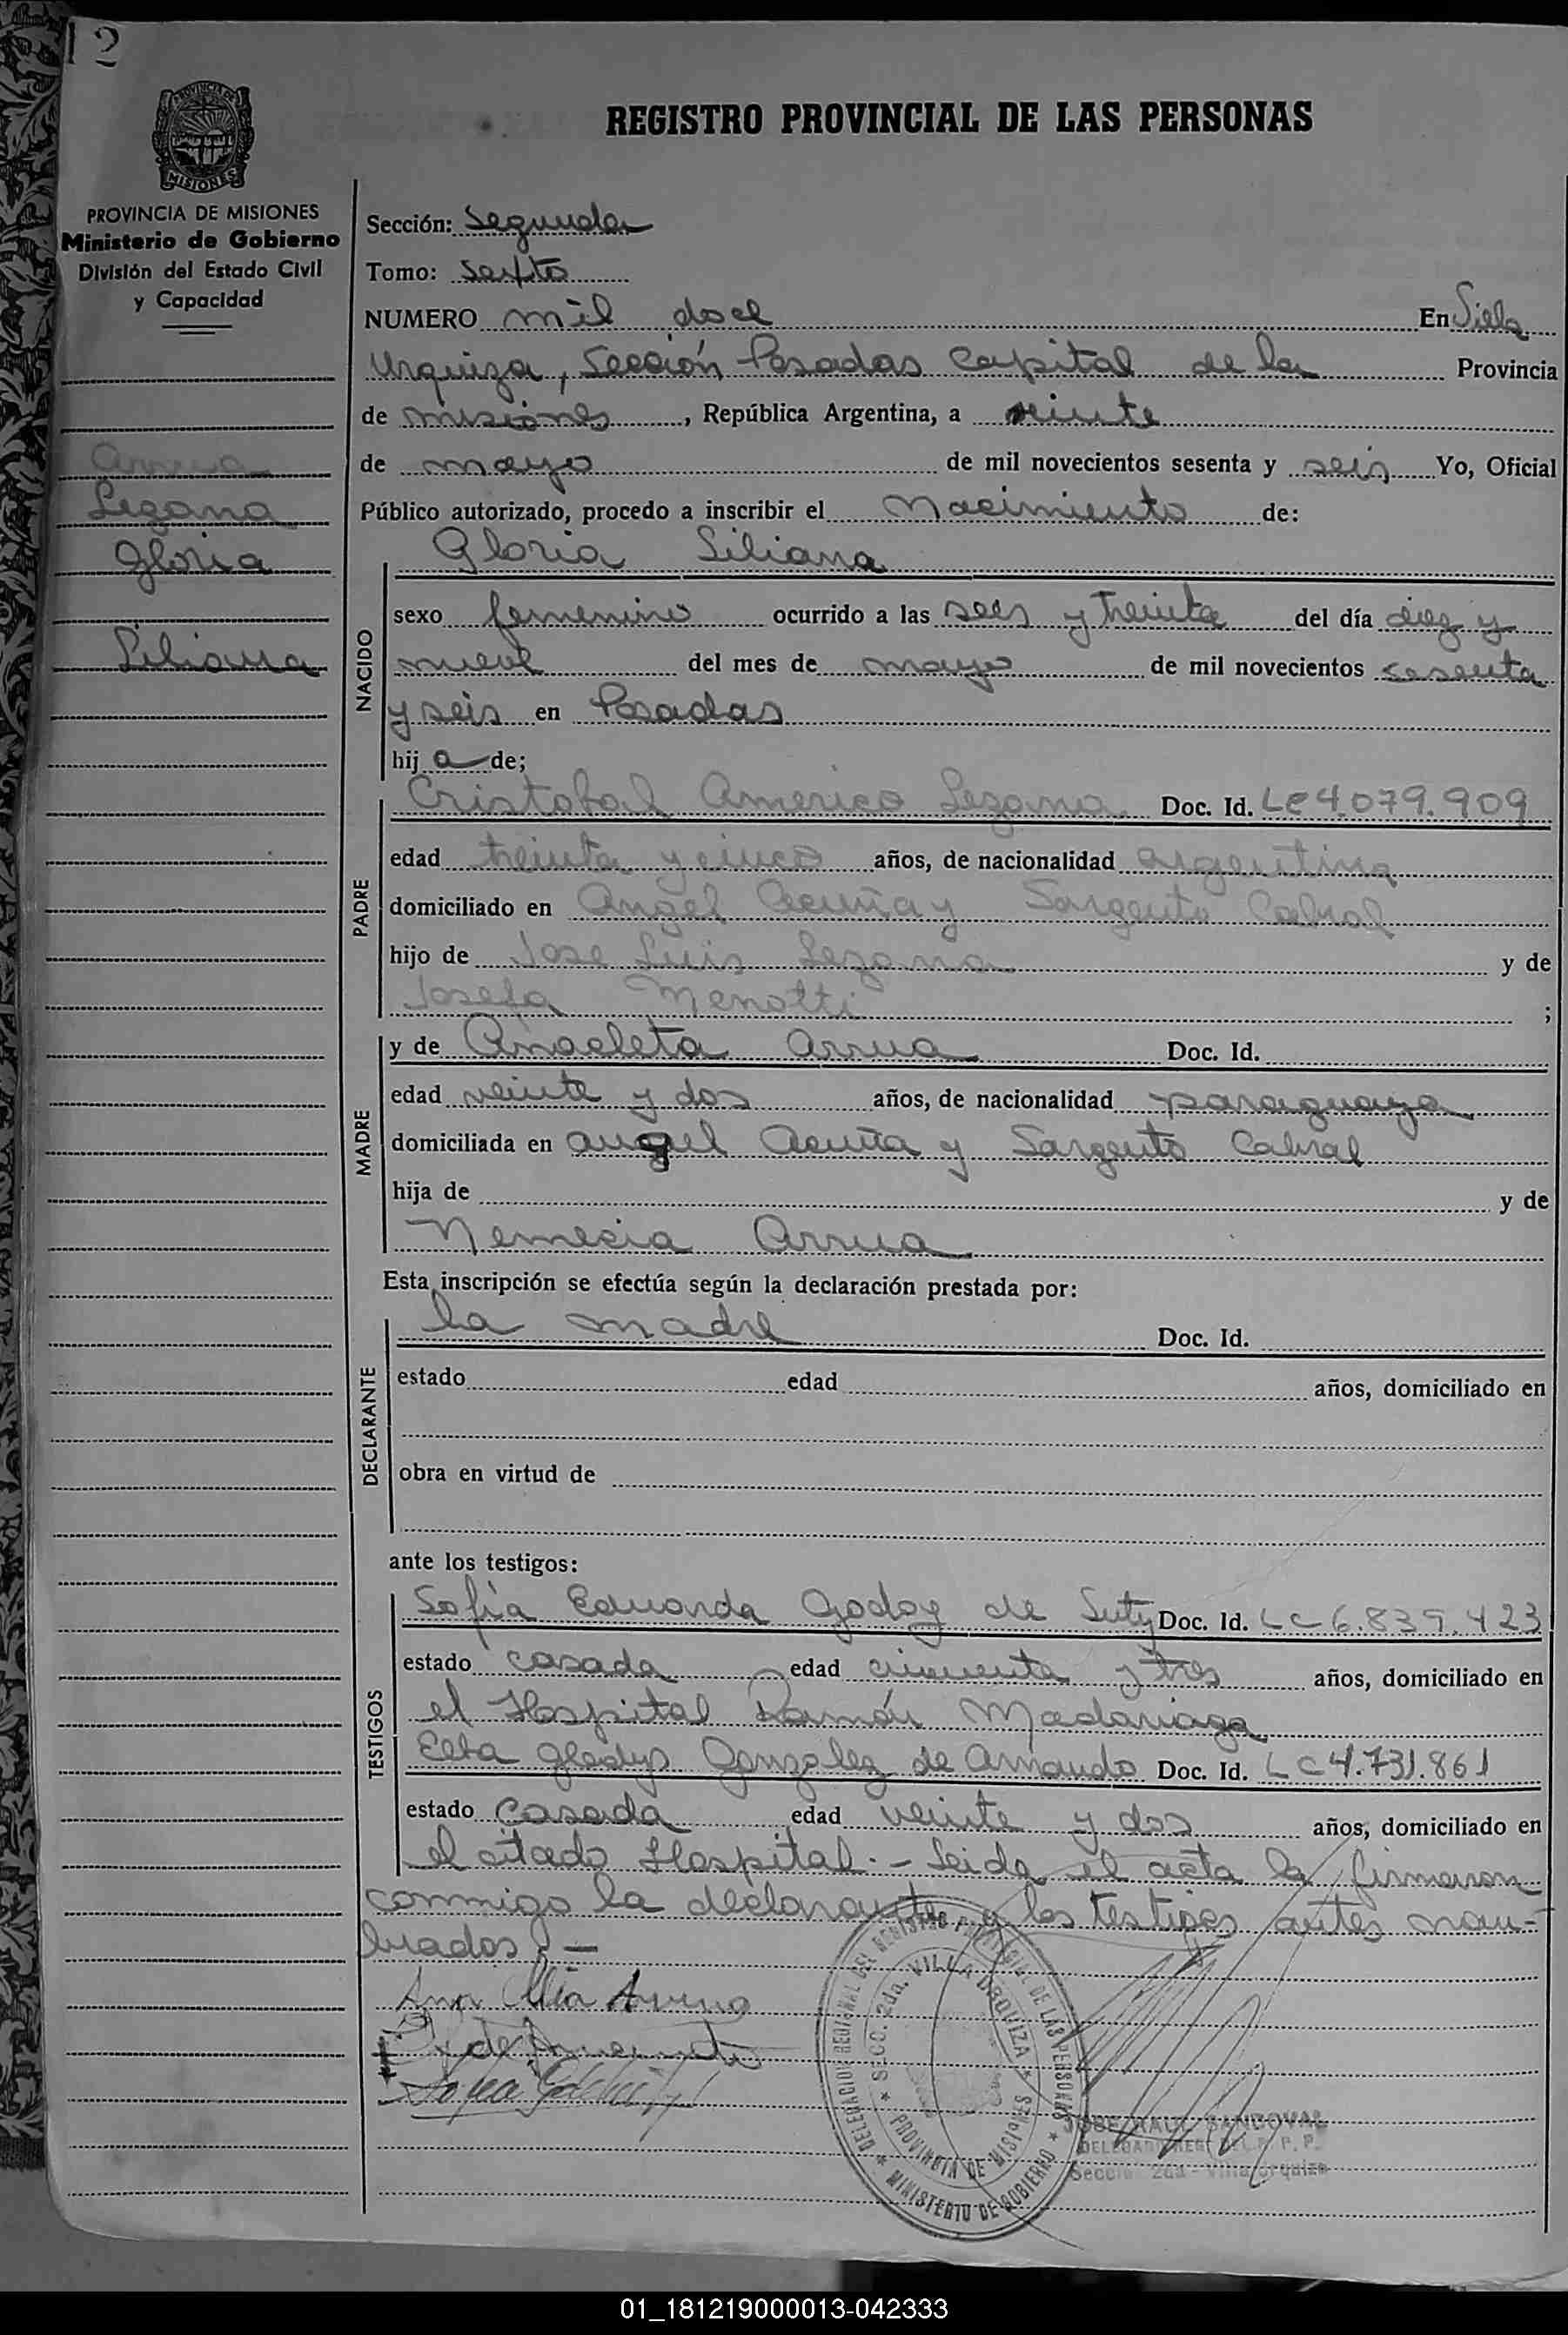 12
PROVINCIA DE
MISIONES
REGISTRO PROVINCIAL DE LAS PERSONAS
PROVINCIA DE MISIONES
Ministerio de Gobierno
División del Estado Civil
y Capacidad
Arrua
Lezana
Gloria
Liliana
Sección: Segunda
Tomo: Sexto
NUMERO mil doce En Villa
Urquiza, Sección Posadas Capital de la Provincia
de misiones, República Argentina, a veinte
de mayo de mil novecientos sesenta y seis Yo, Oficial
Público autorizado, procedo a inscribir el Nacimiento de:
NACIDO
Gloria Liliana
sexo femenino ocurrido a las seis y treinta del día diez y
nueve del mes de mayo de mil novecientos sesenta
y seis en Posadas
hij a de;
PADRE
Cristobal Americo Lezana Doc. Id. LE 4.079.909
edad treinta y cinco años, de nacionalidad argentina
domiciliado en Angel Acuña y Sargento Cabral
hijo de Jose Luis Lezana y de
Josefa Menotti ;
MADRE
y de Anacleta Arrua Doc. Id.
edad veinte y dos años, de nacionalidad paraguaya
domiciliada en angel Acuña y Sargento Cabral
hija de y de
Nemecia Arrua
Esta inscripción se efectúa según la declaración prestada por:
DECLARANTE
la madre Doc. Id.
estado edad años, domiciliado en
obra en virtud de
ante los testigos:
TESTIGOS
Sofia Eduarda Godoy de Suty Doc. Id. LC 6.839.423
estado casada edad cincuenta y tres años, domiciliado en
el Hospital Ramón Madariaga
Elba Gladys Gonzalez de Amando Doc. Id. LC 4.731.861
estado Casada edad veinte y dos años, domiciliado en
el citado Hospital.- Leida el acta la firmaron
conmigo la declarante y los testigos antes nom-
brados.-
DELEGACION REGIONAL DEL REGISTRO PROVINCIAL DE LAS PERSONAS
SECC. 2da. VILLA URQUIZA
PROVINCIA DE MISIONES
MINISTERIO DE GOBIERNO
JOSE RAUL SANDOVAL
DELEGADO REG. DEL R. P. P.
Sección 2da - Villa Urquiza
01_181219000013-042333